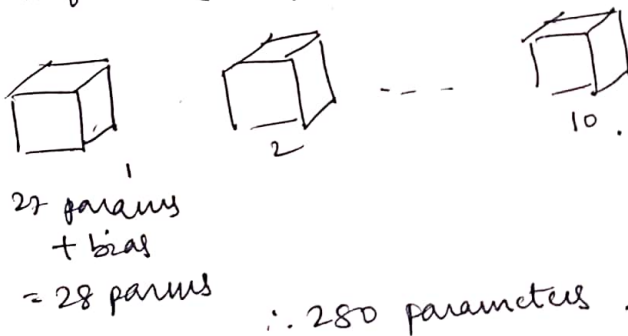 1 2 - - - 10.
27 params
+ bias
= 28 parms
∴ 280 parameters.